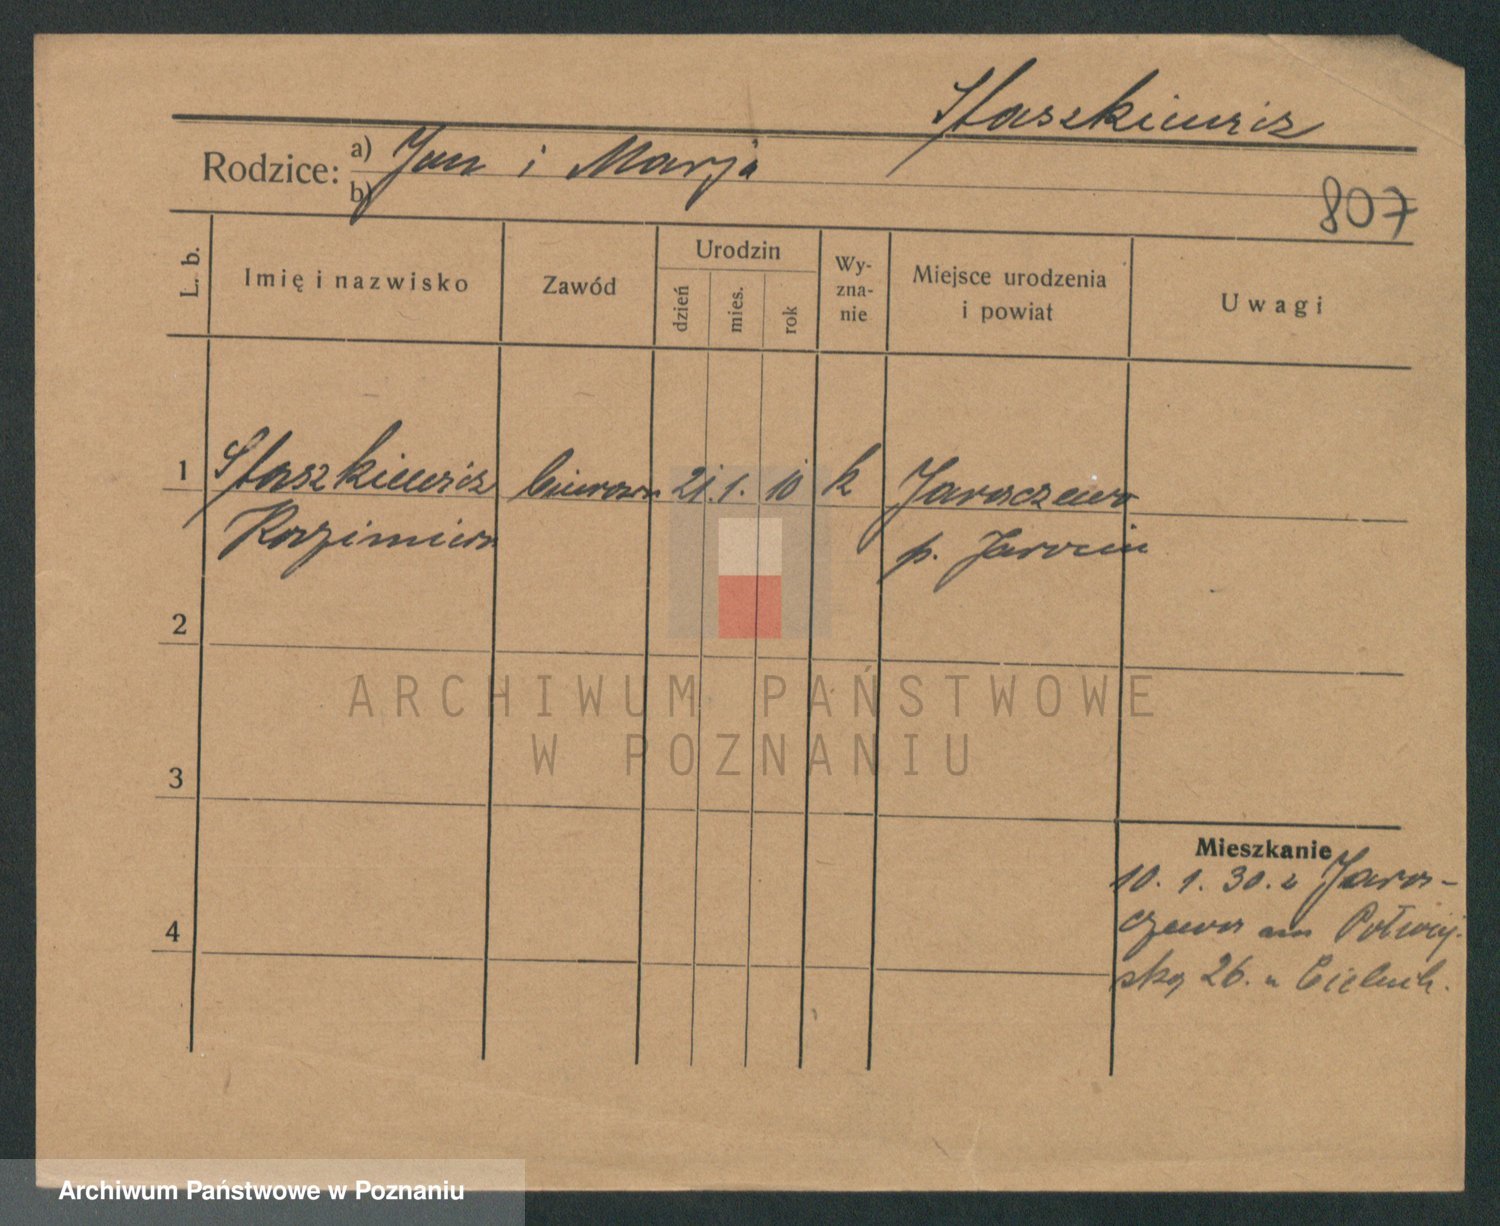 Staszkiewicz
Rodzice: a) Jan i Marja
b)
807
L. b.
Imię i nazwisko
Zawód
Urodzin
dzień
mies.
rok
Wy-
zna-
nie
Miejsce urodzenia
i powiat
Uwagi
1 Staszkiewicz biurow 21. 1. 10 k Jaraczewo
Kazimierz p. Jarocin
2
3
4
ARCHIWUM PAŃSTWOWE
W POZNANIU
Mieszkanie
10. 1. 30. z Jara-
czewa na
ską 26. u
Archiwum Państwowe w Poznaniu